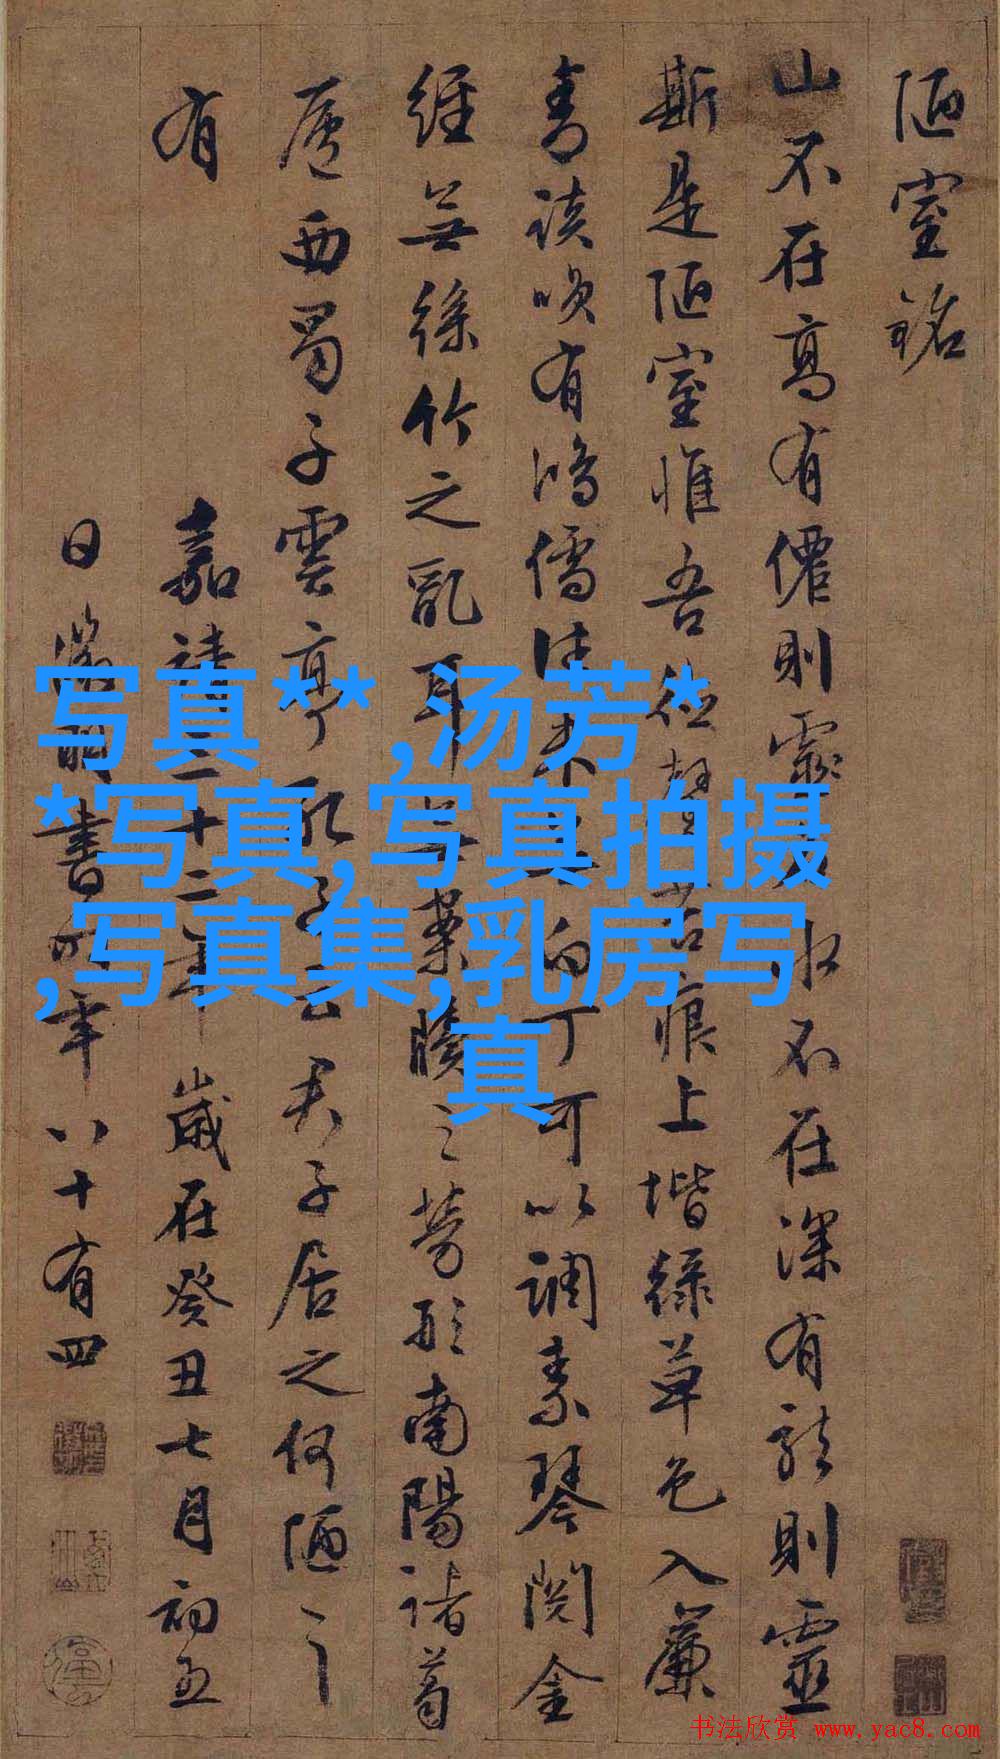 陋室銘
山不在高有僊則靈水不在深有龍則靈
斯是陋室惟吾德馨苔痕上堦綠草色入簾
青談咲有鴻儒往來無白丁可以調素琴閱金
經無絲竹之亂耳無案牘之勞形南陽諸葛
廬西蜀子雲亭孔子云君子居之何陋之
有
嘉靖三十二年歲在癸丑七月初五
日徵明書時年八十有四
写真** ,汤芳*
*写真,写真拍摄
,写真集,乳房写
真
书法欣赏 www.yac8.com